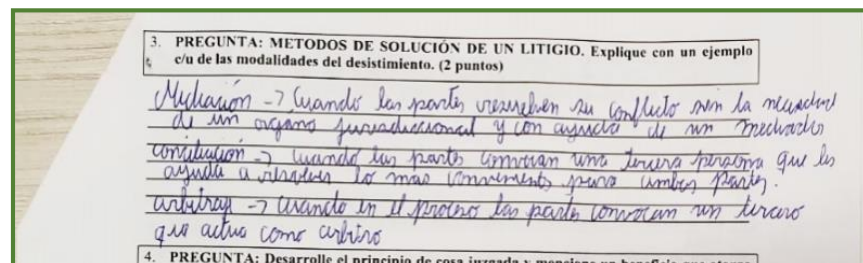 3. PREGUNTA: METODOS DE SOLUCIÓN DE UN LITIGIO. Explique con un ejemplo
c/u de las modalidades del desistimiento. (2 puntos)
Mediación -> Cuando las partes resuelven su conflicto sin la necesidad
de un organo jurisdiccional y con ayuda de un mediador
conciliación -> cuando las partes convocan una tercera persona que les
ayuda a resolver lo mas conveniente para ambas partes.
arbitraje -> cuando en el proceso las partes convocan un tercero
que actua como arbitro
4. PREGUNTA: Desarrolle el principio de cosa juzgada y mencione un beneficio que